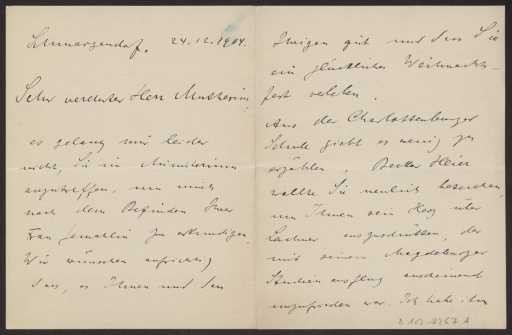 Schmargendorf, 24.12.1904.
Sehr verehrter Herr Muthesius,
es gelang mir leider
nicht, Sie im Ministerium
anzutreffen, um mich
nach dem Befinden Ihrer
Frau Gemahlin zu erkundigen.
Wir wünschen aufrichtig
dass, es Ihnen und den
Ihrigen gut und dass Sie
ein glückliches Weihnachts-
fest verleben.
Aus der Charlottenburger
Schule giebt es wenig zu
erzählen.
wollte Sie neulich besuchen,
um Ihnen sein Herz über
auszuschütten, der
mit seinem Magdeburger
Studienausflug anscheinend
unzufrieden war. Ich habe ihm